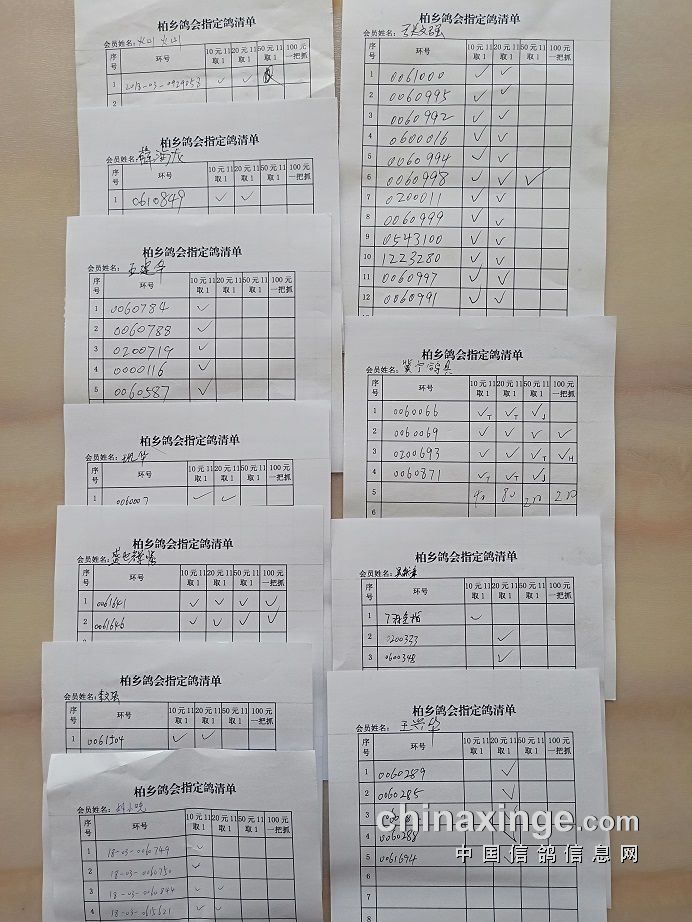 柏乡鸽会指定鸽清单
会员姓名：火山 火山
序号 环号 10元11取1 20元11取1 50元11取1 100元一把抓
1 2018-03-0929858 ✓ ✓
柏乡鸽会指定鸽清单
会员姓名：
序号 环号 10元11取1 20元11取1 50元11取1 100元一把抓
1 0610849 ✓ ✓
柏乡鸽会指定鸽清单
会员姓名：
序号 环号 10元11取1 20元11取1 50元11取1 100元一把抓
1 0060784 ✓
2 0060788 ✓
3 0200719 ✓
4 0000116 ✓
5 0060587 ✓
柏乡鸽会指定鸽清单
会员姓名：
序号 环号 10元11取1 20元11取1 50元11取1 100元一把抓
1 0060007 ✓ ✓
柏乡鸽会指定鸽清单
会员姓名：
序号 环号 10元11取1 20元11取1 50元11取1 100元一把抓
1 0061641 ✓ ✓ ✓ ✓
2 0061646 ✓ ✓ ✓ ✓
柏乡鸽会指定鸽清单
会员姓名：李文强
序号 环号 10元11取1 20元11取1 50元11取1 100元一把抓
1 0061504 ✓ ✓
柏乡鸽会指定鸽清单
会员姓名：
序号 环号 10元11取1 20元11取1 50元11取1 100元一把抓
1 18-03-0060749 ✓
2 18-03-0060750 ✓
3 18-03-0060844 ✓ ✓
4 18-03-0615621 ✓ ✓
会员姓名：
序号 环号 10元11取1 20元11取1 50元11取1 100元一把抓
1 0061000 ✓ ✓
2 0060995 ✓ ✓
3 0060992 ✓ ✓
4 0600016 ✓ ✓
5 0060994 ✓ ✓
6 0060998 ✓ ✓ ✓
7 0200011 ✓ ✓
8 0060999 ✓ ✓
9 0543100 ✓ ✓
10 1223280 ✓ ✓
11 0060997 ✓ ✓
12 0060991 ✓ ✓
柏乡鸽会指定鸽清单
会员姓名：冀宁鸽具
序号 环号 10元11取1 20元11取1 50元11取1 100元一把抓
1 0060066 ✓T ✓T ✓J
2 0060069 ✓ ✓ ✓ ✓
3 0200693 ✓ ✓ ✓ ✓H
4 0060871 ✓T ✓T ✓J
5 80
6
柏乡鸽会指定鸽清单
会员姓名：
序号 环号 10元11取1 20元11取1 50元11取1 100元一把抓
1 ✓
2 0200333 ✓
3 0600348 ✓
柏乡鸽会指定鸽清单
会员姓名：王兴华
序号 环号 10元11取1 20元11取1 50元11取1 100元一把抓
1 0060289 ✓
2 0060285 ✓
3
4 0060288 ✓
5 0061694 ✓
7
8
chinaxinge.com
中国信鸽信息网